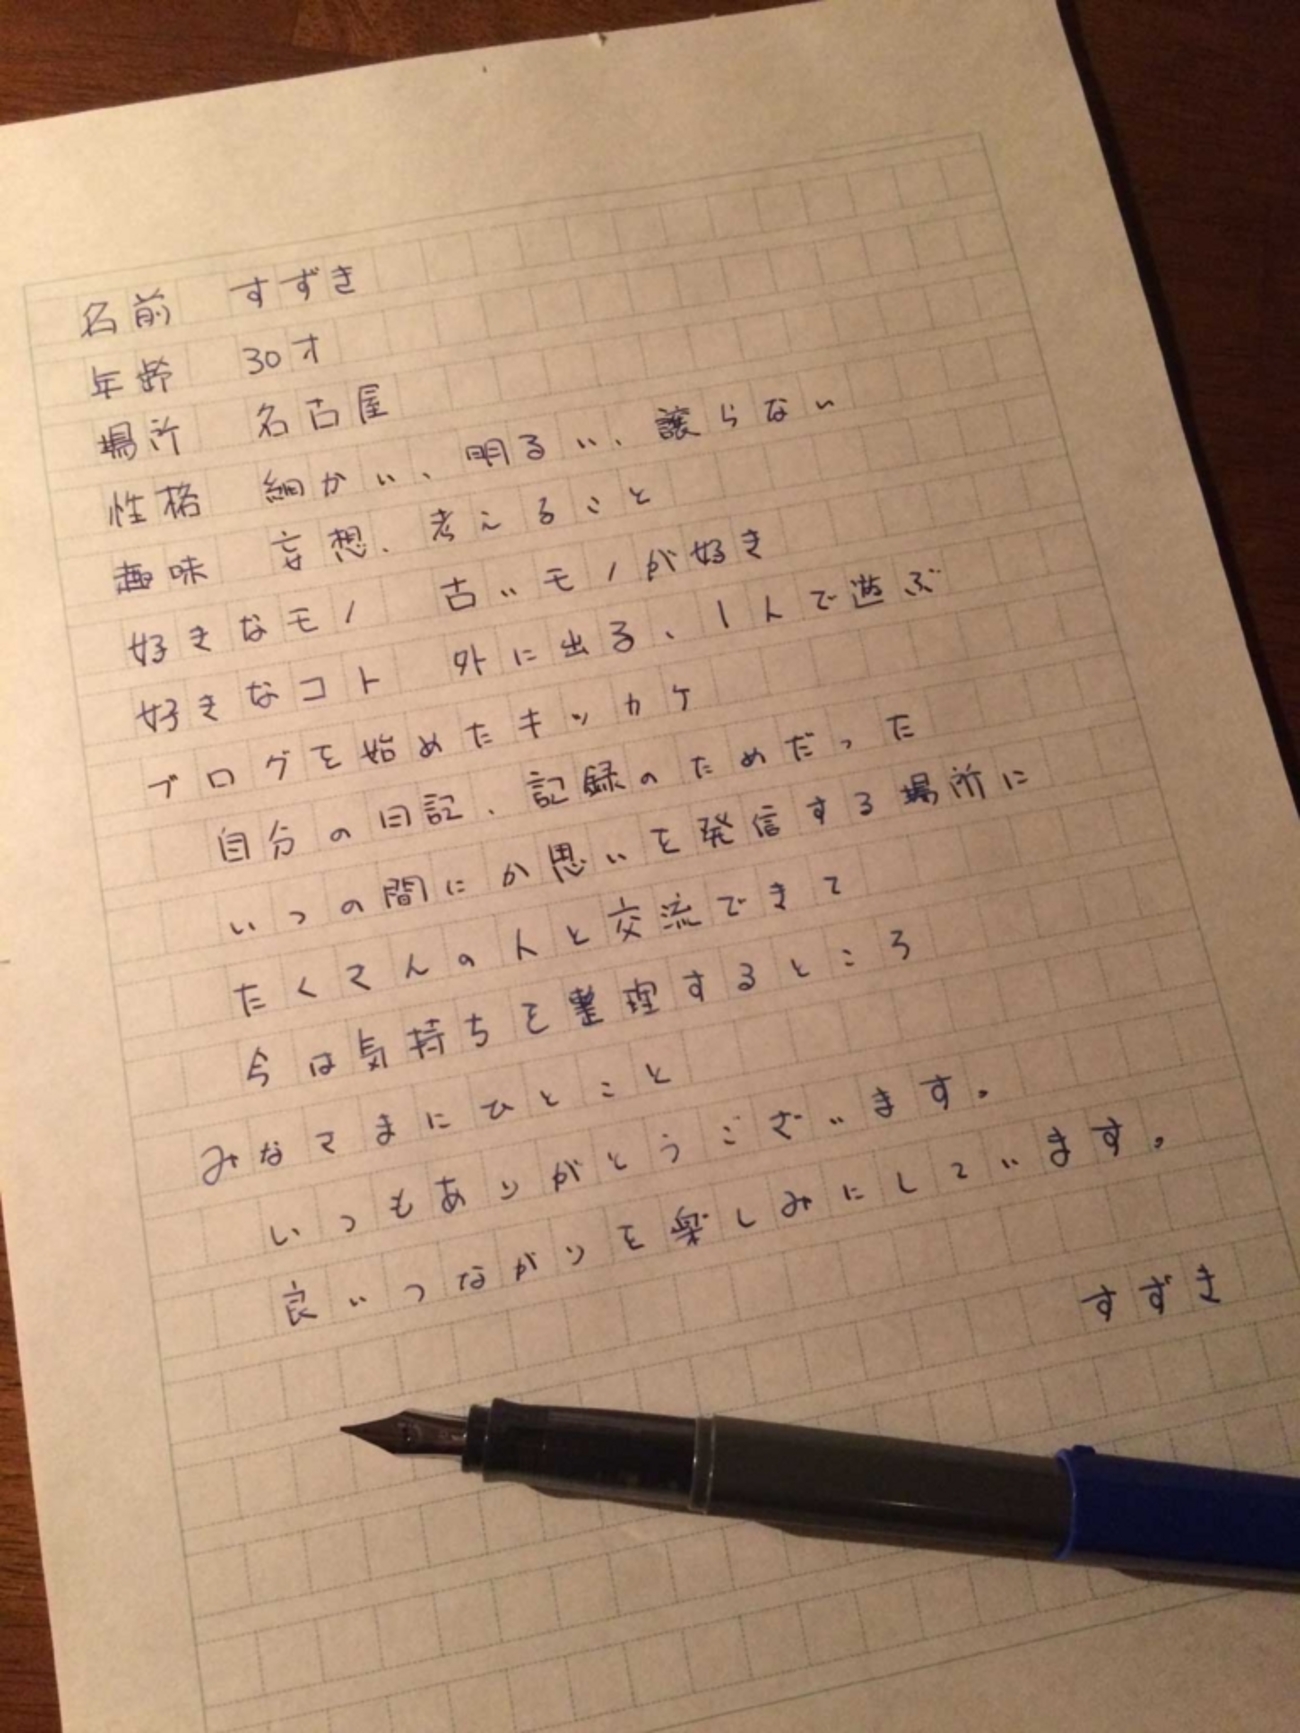 名前 すずき
年齢 30才
場所 名古屋
性格 細かい、明るい、譲らない
趣味 妄想、考えること
好きなモノ 古いモノが好き
好きなコト 外に出る、1人で遊ぶ
ブログを始めたキッカケ
自分の日記、記録のためだった
いつの間にか思いを発信する場所に
たくさんの人と交流できて
今は気持ちを整理するところ
みなさまにひとこと
いつもありがとうございます。
良いつながりを楽しみにしています。
すずき